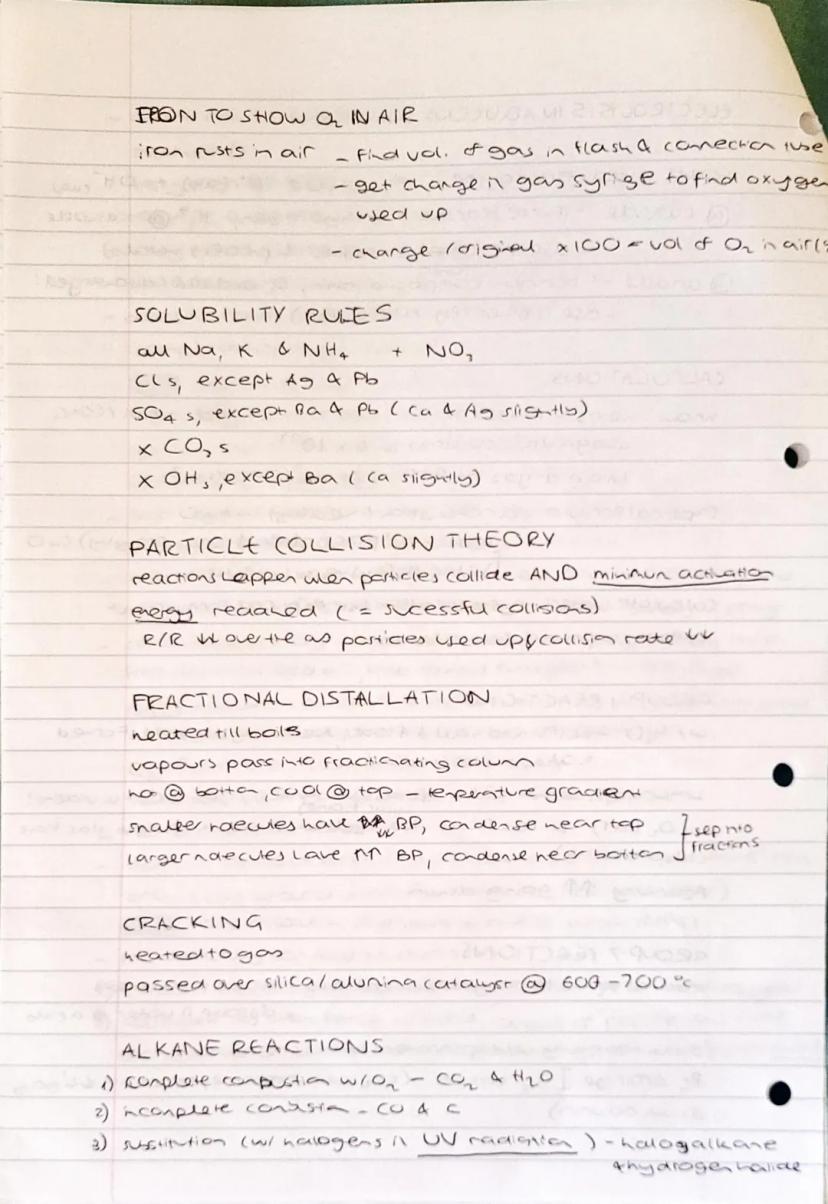 IRON TO SHOW O₂ IN AIR
iron rusts in air - find vol. of gas in flask & connection tube
- get change in gas syringe to find oxygen
used up
- change / original x 100 = vol of O₂ in air (%
SOLUBILITY RULES
all Na, K & NH₄ + NO₃
Cl s, except Ag & Pb
SO₄ s, except Ba & Pb (Ca & Ag slightly)
x CO₃ s
x OH s, except Ba (Ca slightly)
PARTICLE COLLISION THEORY
reactions happen when particles collide AND minimum activation
energy reached (= sucessful collisions)
R/R ↓↓ over time as particles used up & collision rate ↓↓
FRACTIONAL DISTALLATION
heated till boils
vapours pass into fractionating column
hot @ bottom, cool @ top - temperature gradient
smaller molecules have ↓↓ BP, condense near top
larger molecules have ↑↑ BP, condense near bottom
sep into
fractions
CRACKING
heated to gas
passed over silica/alumina catalyst @ 600-700 °C
ALKANE REACTIONS
1) complete combustion w/ O₂ - CO₂ & H₂O
2) incomplete combustion - CO & C
3) substitution (w/ halogens in UV radiation) - halogalkane
& hydrogen halide